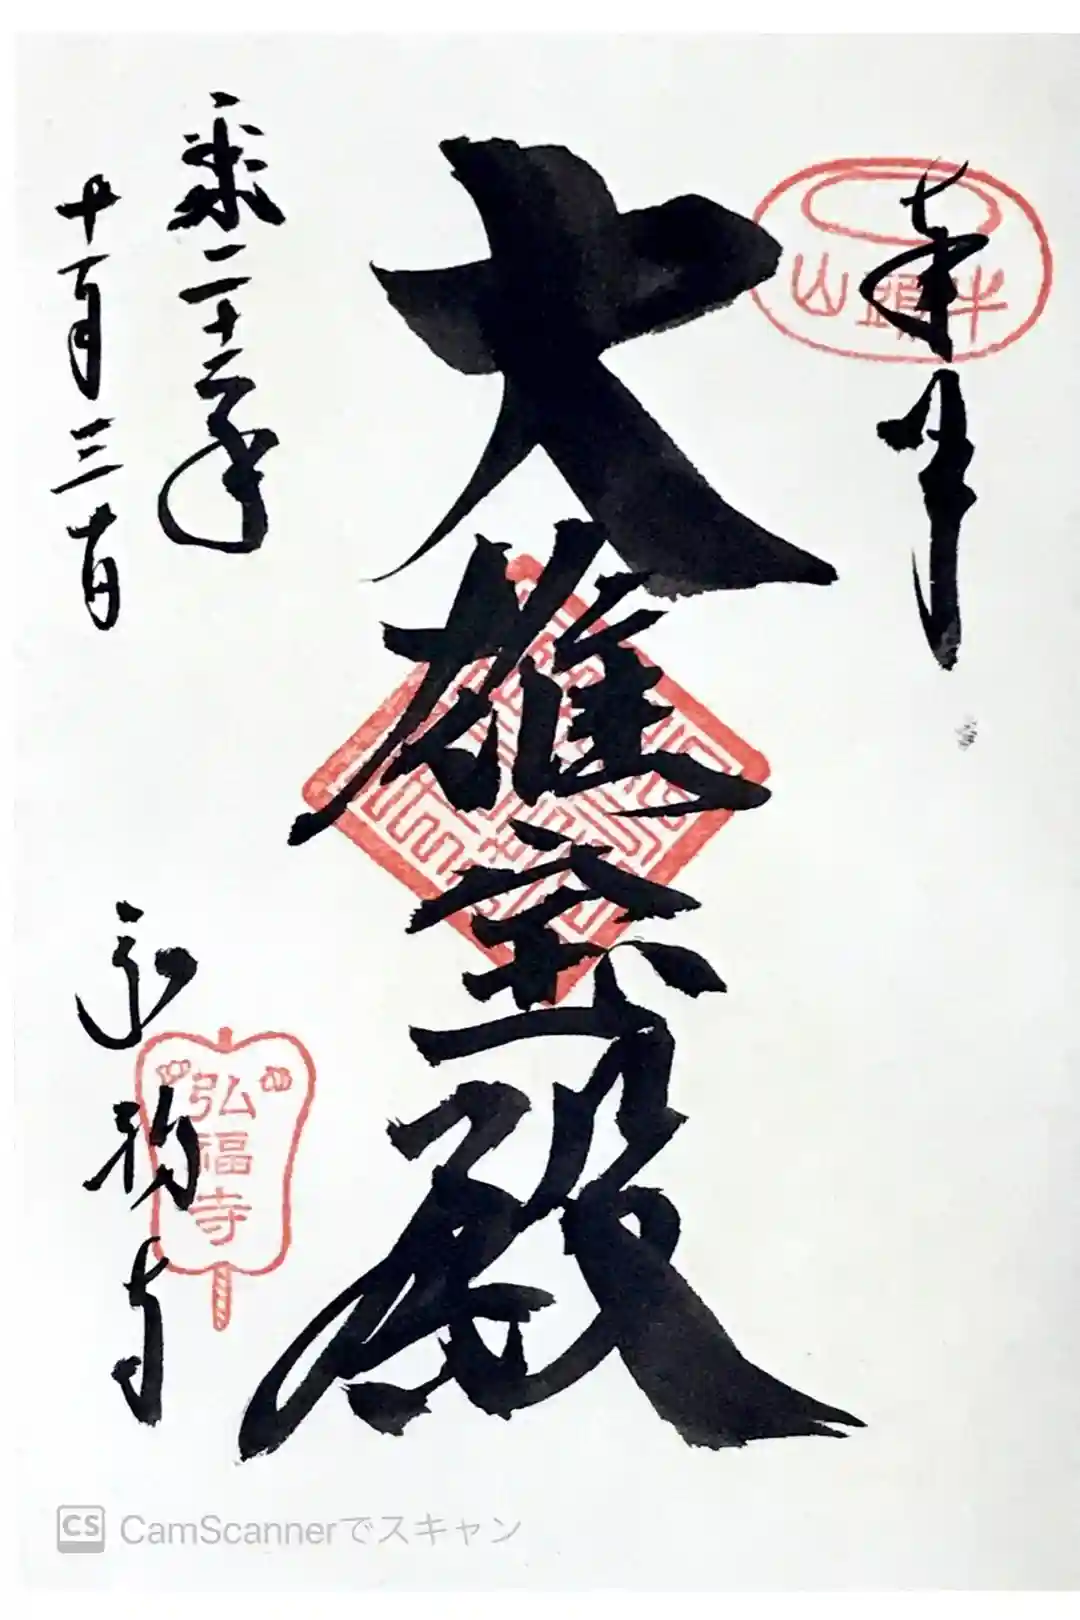 奉拝
牛頭山
大雄宝殿
平成二十三年
十一月三日
弘福寺
弘福寺
CS CamScannerでスキャン